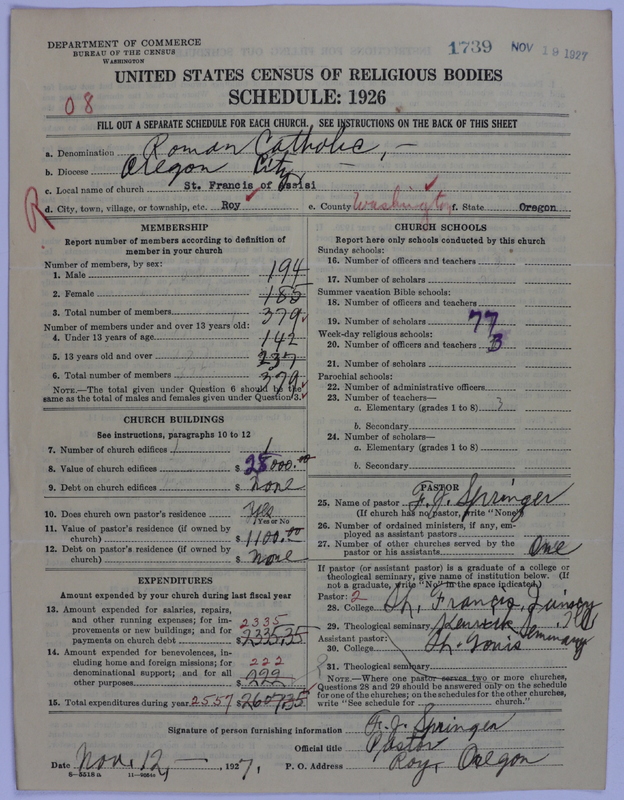 DEPARTMENT OF COMMERCE
BUREAU OF THE CENSUS
WASHINGTON
1739 NOV 19 1927
UNITED STATES CENSUS OF RELIGIOUS BODIES
SCHEDULE: 1926
08
FILL OUT A SEPARATE SCHEDULE FOR EACH CHURCH. SEE INSTRUCTIONS ON THE BACK OF THIS SHEET
a. Denomination Roman Catholic,
b. Diocese Oregon City
c. Local name of church St. Francis of Assisi
R
d. City, town, village, or township, etc. Roy e. County Washington f. State Oregon
MEMBERSHIP
Report number of members according to definition of
member in your church
Number of members, by sex:
1. Male 194
2. Female 185
3. Total number of members 379
Number of members under and over 13 years old:
4. Under 13 years of age 142
5. 13 years old and over 237
6. Total number of members 379
NOTE.—The total given under Question 6 should be the
same as the total of males and females given under Question 3.
CHURCH BUILDINGS
See instructions, paragraphs 10 to 12
7. Number of church edifices 1
8. Value of church edifices $ 28000.00
9. Debt on church edifices $ None
10. Does church own pastor's residence Yes
Yes or No
11. Value of pastor's residence (if owned by
church) $ 1100.00
12. Debt on pastor's residence (if owned by
church) $ None
EXPENDITURES
Amount expended by your church during last fiscal year
13. Amount expended for salaries, repairs,
and other running expenses; for im-
provements or new buildings; and for
payments on church debt $ 2335.35
2335
14. Amount expended for benevolences, in-
cluding home and foreign missions; for
denominational support; and for all
other purposes $ 222
222
15. Total expenditures during year 2557 $ 2607.35
CHURCH SCHOOLS
Report here only schools conducted by this church
Sunday schools:
16. Number of officers and teachers
17. Number of scholars
Summer vacation Bible schools:
18. Number of officers and teachers
19. Number of scholars 77
Week-day religious schools:
20. Number of officers and teachers 3
21. Number of scholars
Parochial schools:
22. Number of administrative officers
23. Number of teachers—
a. Elementary (grades 1 to 8) 3
b. Secondary
24. Number of scholars—
a. Elementary (grades 1 to 8)
b. Secondary
PASTOR
25. Name of pastor F. J. Springer
(If church has no pastor, write "None")
26. Number of ordained ministers, if any, em-
ployed as assistant pastors
27. Number of other churches served by the
pastor or his assistants One
If pastor (or assistant pastor) is a graduate of a college or
theological seminary, give name of institution below. (If
not a graduate, write "No" in the space indicated.)
Pastor: 2
28. College St. Francis, Quincy Ill
29. Theological seminary Kenrick Seminary
Assistant pastor:
30. College St. Louis
31. Theological seminary
NOTE.—Where one pastor serves two or more churches,
Questions 28 and 29 should be answered only on the schedule
for one of the churches; on the schedules for the other churches,
write "See schedule for church."
Signature of person furnishing information F. J. Springer
Official title Pastor
Date Nov. 12, 1927. P. O. Address Roy, Oregon
8—5518 a